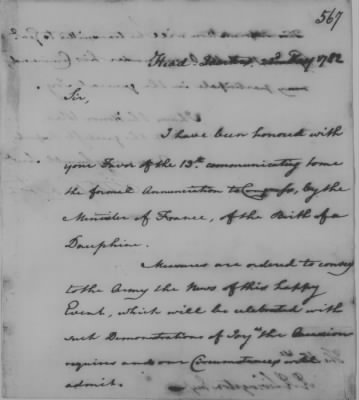 567
Head Quarters 22d May 1782
Sir,
I have been honored with
your Favor of the 13th. communicating to me
the formal Annunciation to Congress, by the
Minister of France, of the Birth of a
Dauphine.
Measures are ordered to convey
to the Army the News of this happy
Event, which will be celebrated with
such Demonstrations of Joy, as the Occasion
requires and our Circumstances will
admit.